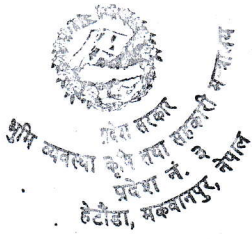 प्रदेश सरकार
भुमि व्यवस्था कृषि तथा सहकारी मन्त्रालय
प्रदेश नं. ३
हेटौंडा, मकवानपुर, नेपाल